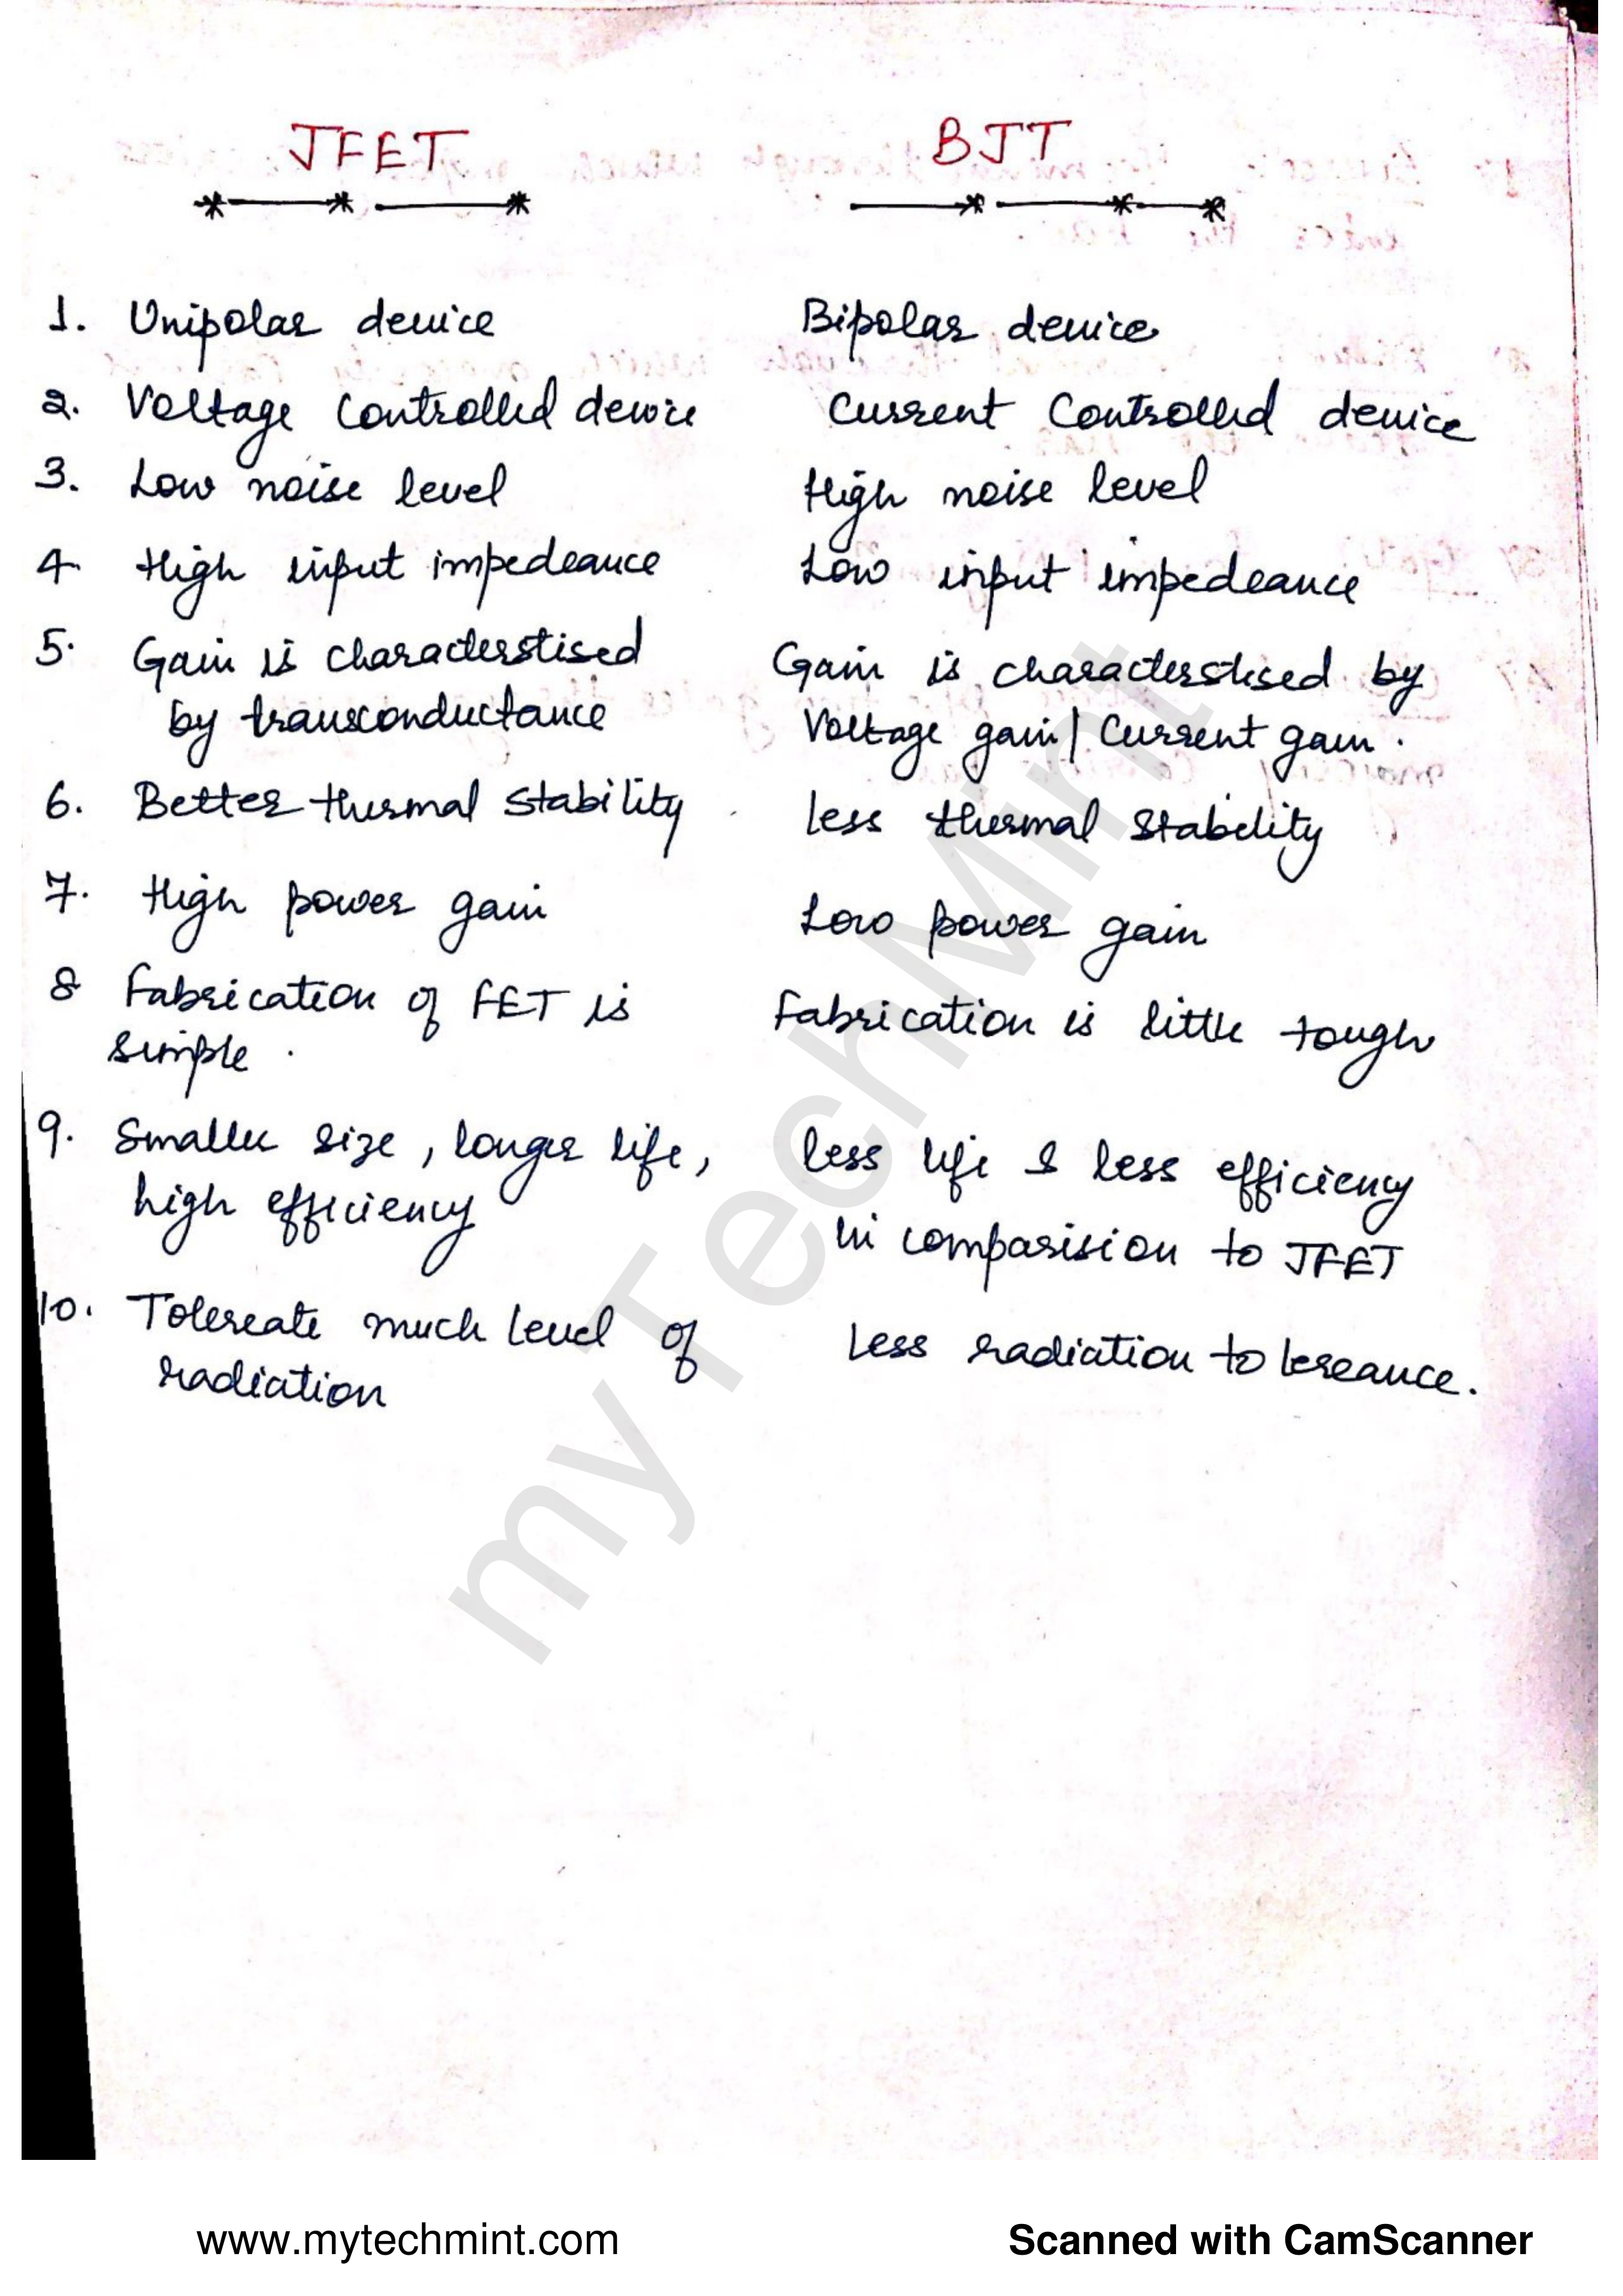 JFET BJT
1. Unipolar device Bipolar device
2. Voltage controlled device Current controlled device
3. Low noise level High noise level
4. High input impedeance Low input impedeance
5. Gain is characterstised Gain is characterstised by
by transconductance Voltage gain/Current gain.
6. Better thermal stability less thermal stability
7. High power gain Low power gain
8 Fabrication of FET is Fabrication is little tough
simple.
9. Smaller size, longer life, less life & less efficiency
high efficiency in comparision to JFET
10. Tolereate much level of Less radiation tolereance.
radiation
myTechMint
www.mytechmint.com Scanned with CamScanner